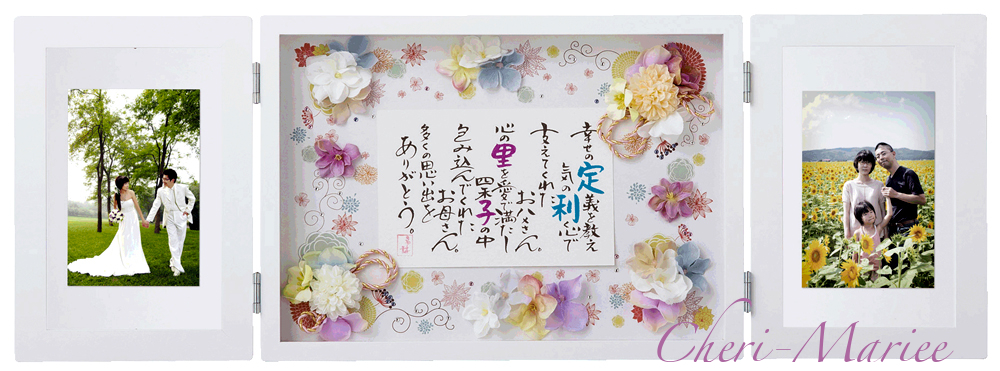 幸せの定義を教え
気の利く心で
支えてくれた
お父さん。
心の里を愛で満たし
子の中
包み込んでくれた
お母さん。
多くの思い出を
ありがとう。
Cheri-Mariee